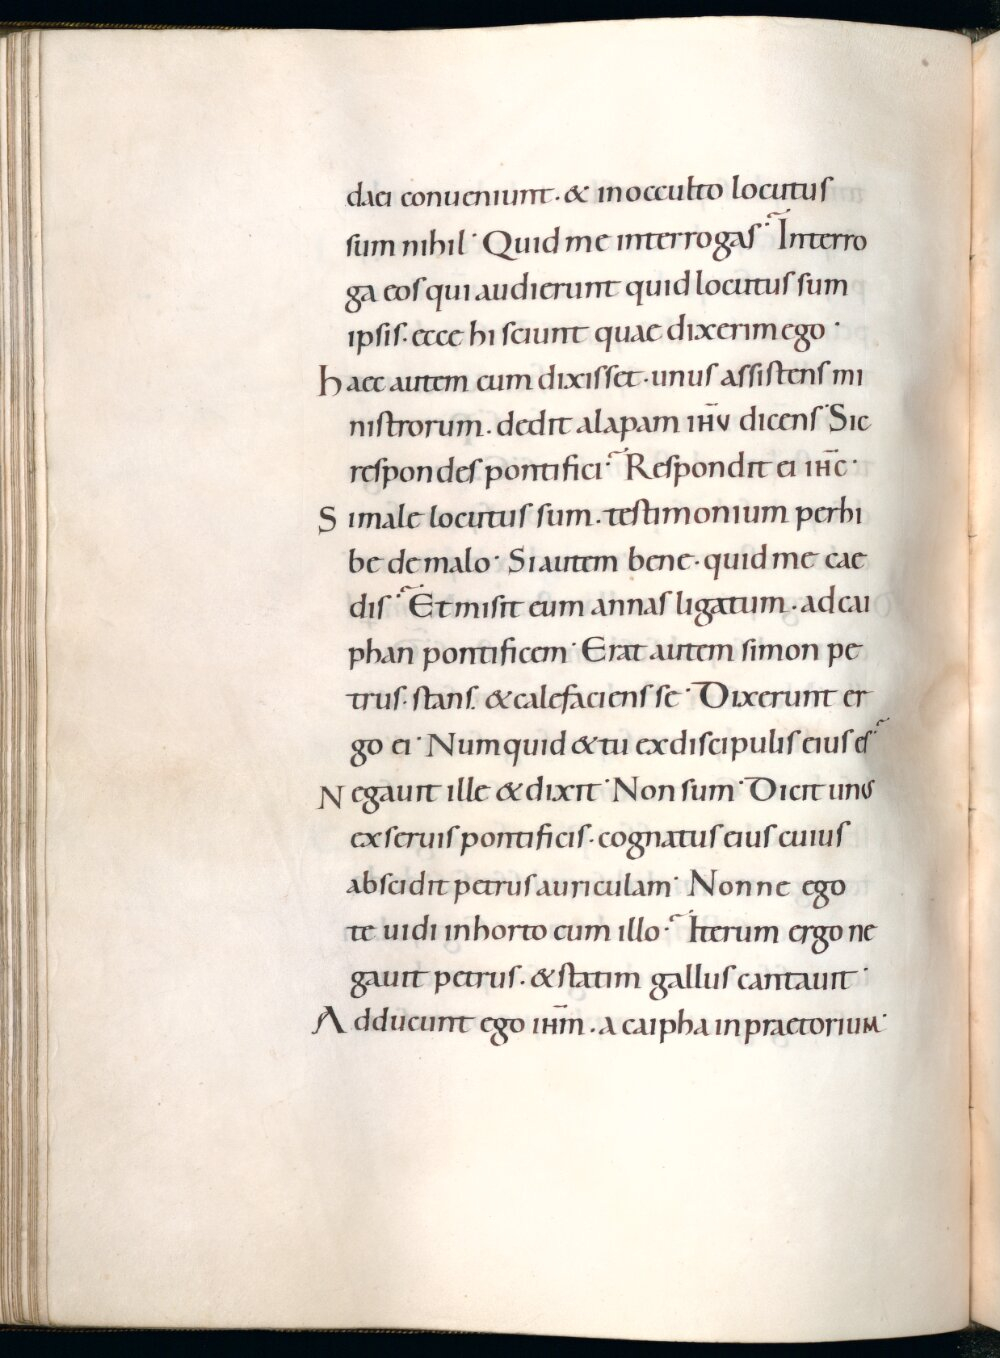 daei conueniunt· & in occulto locutus
sum nihil· Quid me interrogas? Interro
ga eos qui audierunt quid locutus sum
ipsis· ecce hi sciunt quae dixerim ego·
haec autem cum dixisset· unus assistens mi
nistrorum· dedit alapam ihū dicens· Sic
respondes pontifici? Respondit ei ihc̄·
Si male locutus sum· testimonium perhi
be de malo· Si autem bene· quid me cae
dis? Et misit eum annas ligatum· ad cai
phan pontificem· Erat autem simon pe
trus· stans· & calefaciens se· Dixerunt er
go ei· Numquid & tu ex discipulis eius es?
Negauit ille & dixit· Non sum· Dicit unus
ex seruis pontificis· cognatus eius cuius
abscidit petrus auriculam· Nonne ego
te uidi in horto cum illo? Iterum ergo ne
gauit petrus· & statim gallus cantauit·
Adducunt ego ihm̄· a caipha in praetorium·